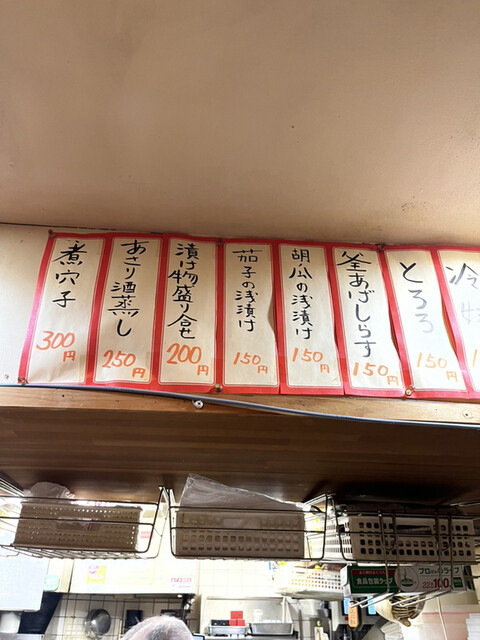 煮穴子
300円
あさり酒蒸し
250円
漬け物盛り合せ
200円
茄子の浅漬け
150円
胡瓜の浅漬け
150円
釜あげしらす
150円
とろろ
150円
冷
食品包装ラップ
100